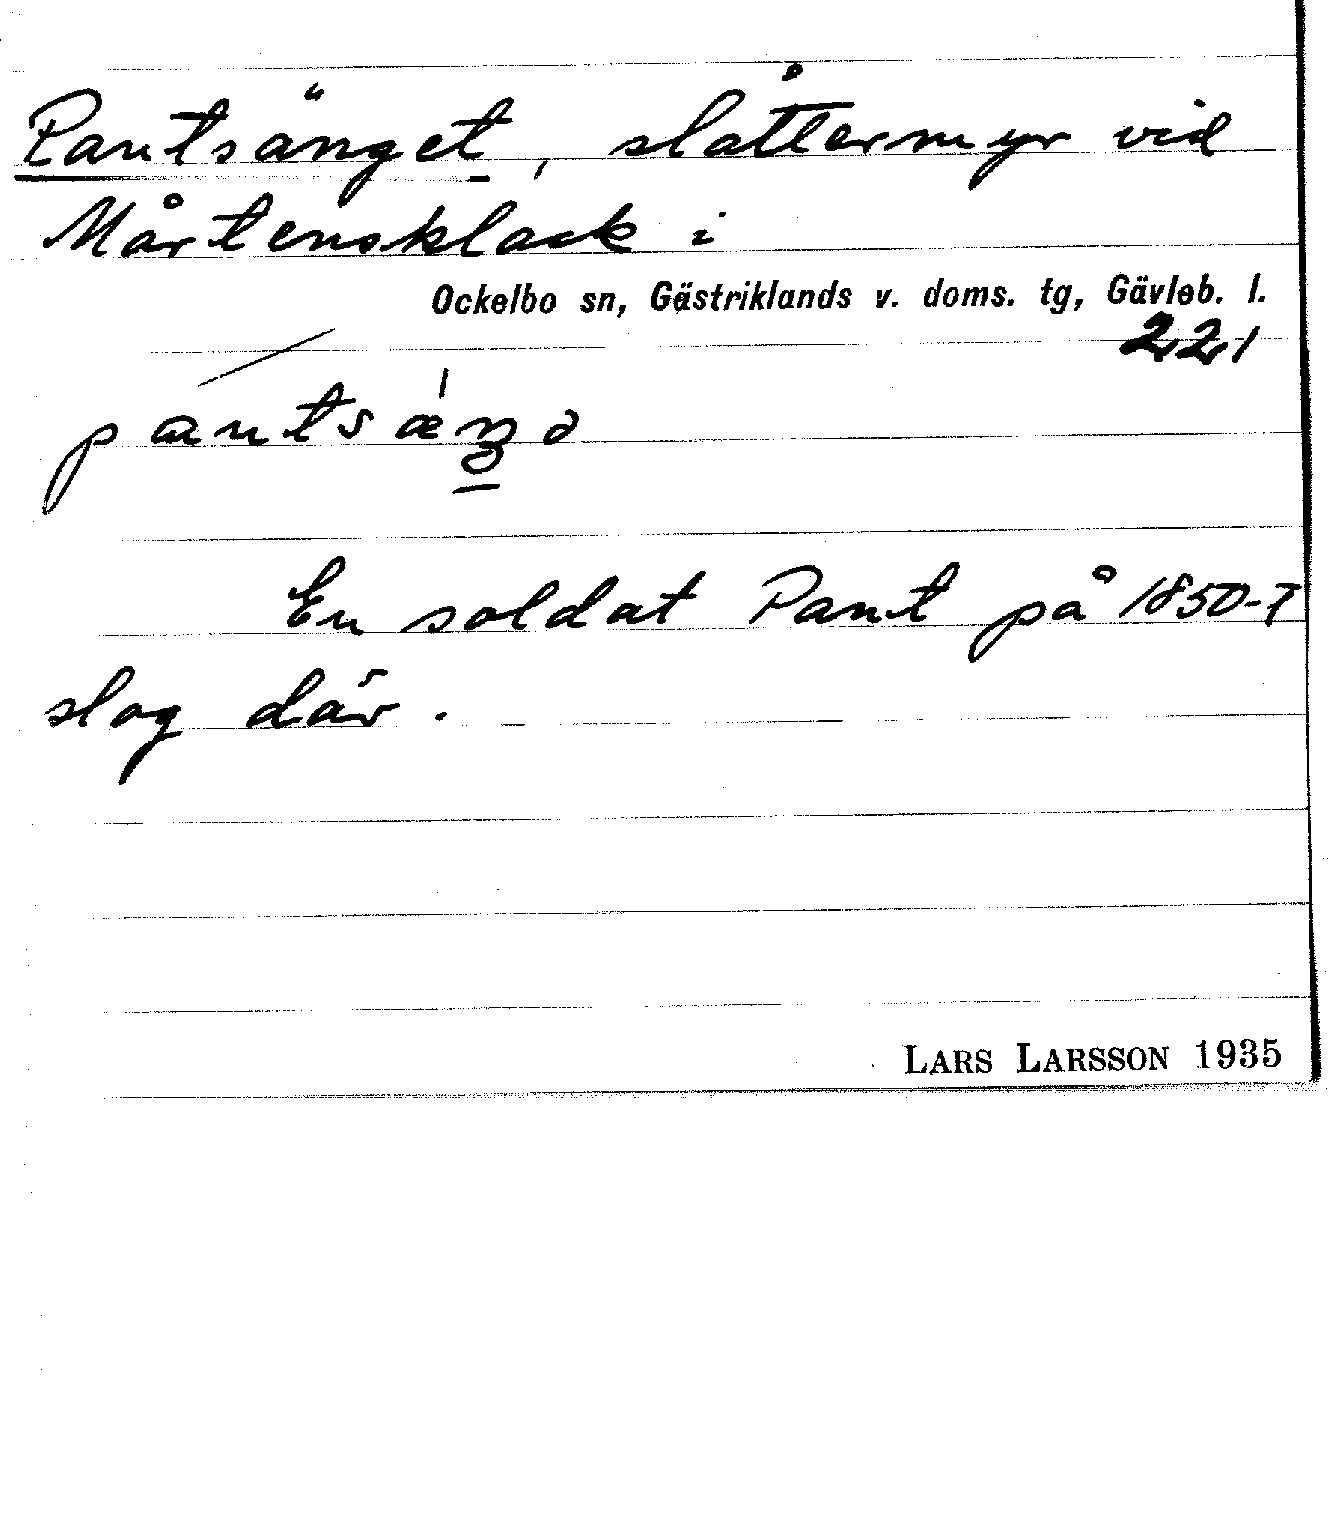 Pantsänget, slåttermyr vid
Mårtensklack i
Ockelbo sn, Gästriklands v. doms. tg, Gävleb. l.
221
En soldat Pant på 1850-T
slog där.
LARS LARSSON 1935